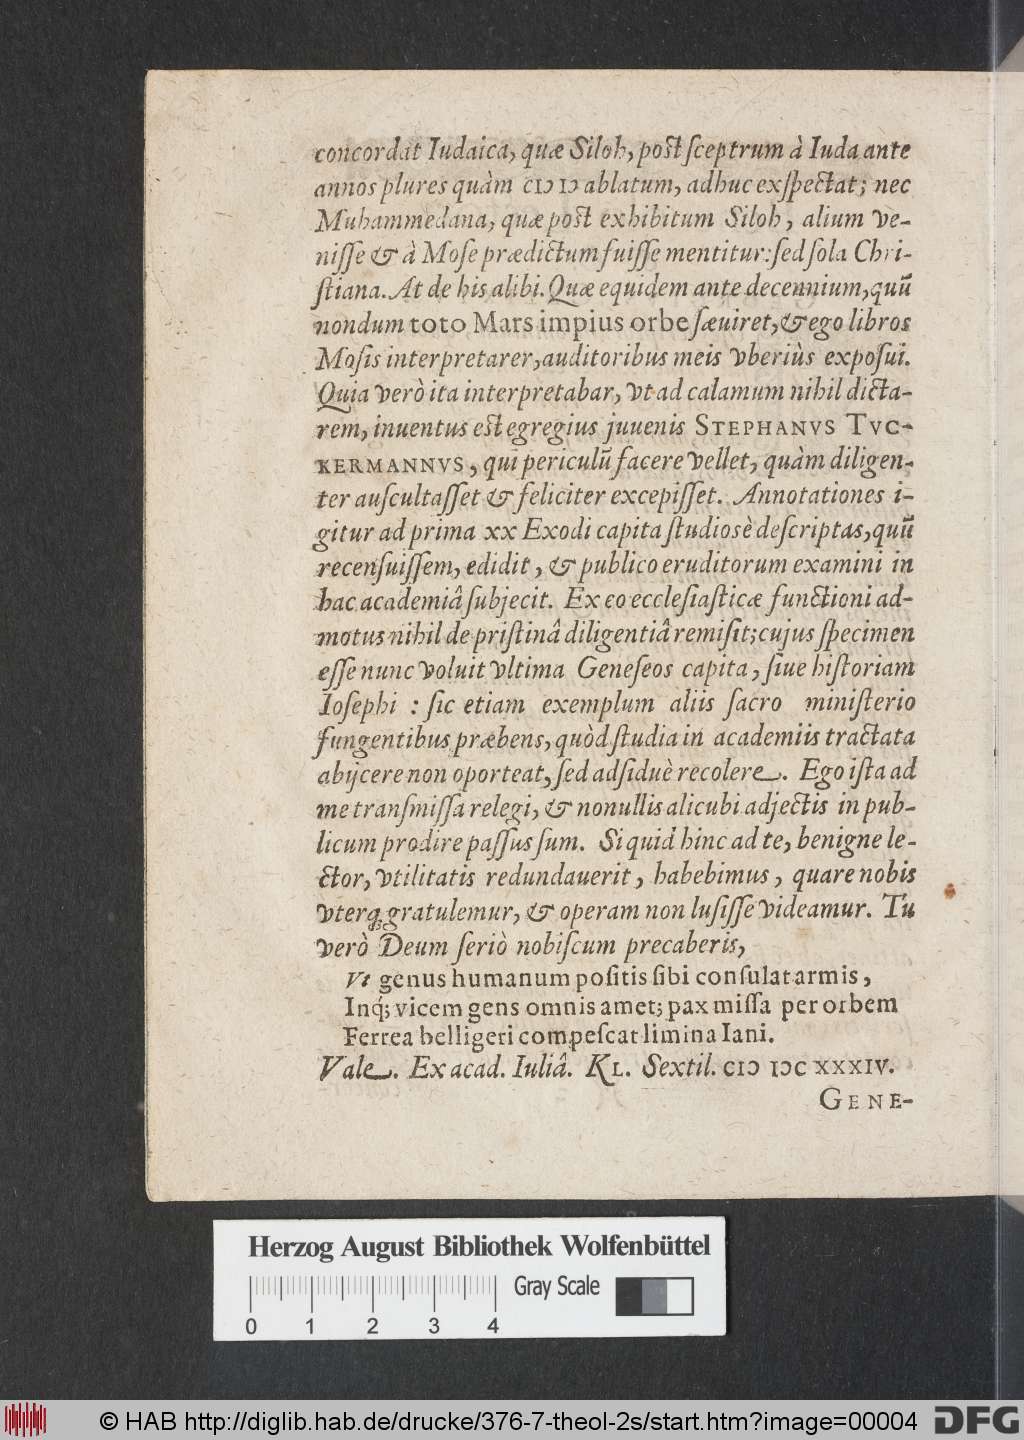 concordat Iudaica, quæ Siloh, post ſceptrum à Iuda ante
annos plures quàm CIↃ IↃ ablatum, adhuc exſpectat; nec
Muhammedana, quæ post exhibitum Siloh, alium ve-
niſſe & à Moſe prædictum fuiſſe mentitur: ſed ſola Chri-
ſtiana. At de his alibi. Quæ equidem ante decennium, quū
nondum toto Mars impius orbe ſæuiret, & ego libros
Moſis interpretarer, auditoribus meis vberiùs expoſui.
Quia verò ita interpretabar, vt ad calamum nihil dicta-
rem, inuentus est egregius juuenis STEPHANVS TVC-
KERMANNVS, qui periculū facere vellet, quàm diligen-
ter auſcultaſſet & feliciter excepiſſet. Annotationes i-
gitur ad prima xx Exodi capita ſtudiosè deſcriptas, quū
recenſuiſſem, edidit, & publico eruditorum examini in
hac academiâ ſubjecit. Ex eo eccleſiaſticæ functioni ad-
motus nihil de priſtinâ diligentiâ remiſit; cujus ſpecimen
eſſe nunc voluit vltima Geneſeos capita, ſiue hiſtoriam
Ioſephi : ſic etiam exemplum aliis ſacro miniſterio
fungentibus præbens, quòd ſtudia in academiis tractata
abijcere non oporteat, ſed adſiduè recolere. Ego iſta ad
me tranſmiſſa relegi, & nonullis alicubi adjectis in pub-
licum prodire paſſus ſum. Si quid hinc ad te, benigne le-
ctor, vtilitatis redundauerit, habebimus, quare nobis
vterq; gratulemur, & operam non luſiſſe videamur. Tu
verò Deum ſeriò nobiſcum precaberis,
Vt genus humanum poſitis ſibi conſulat armis,
Inq́; vicem gens omnis amet; pax miſſa per orbem
Ferrea belligeri compeſcat limina Iani.
Vale. Ex acad. Iuliâ. KL. Sextil. CIↃ IↃC XXXIV.
GENE-
Herzog August Bibliothek Wolfenbüttel
Gray Scale
0 1 2 3 4
© HAB http://diglib.hab.de/drucke/376-7-theol-2s/start.htm?image=00004 DFG